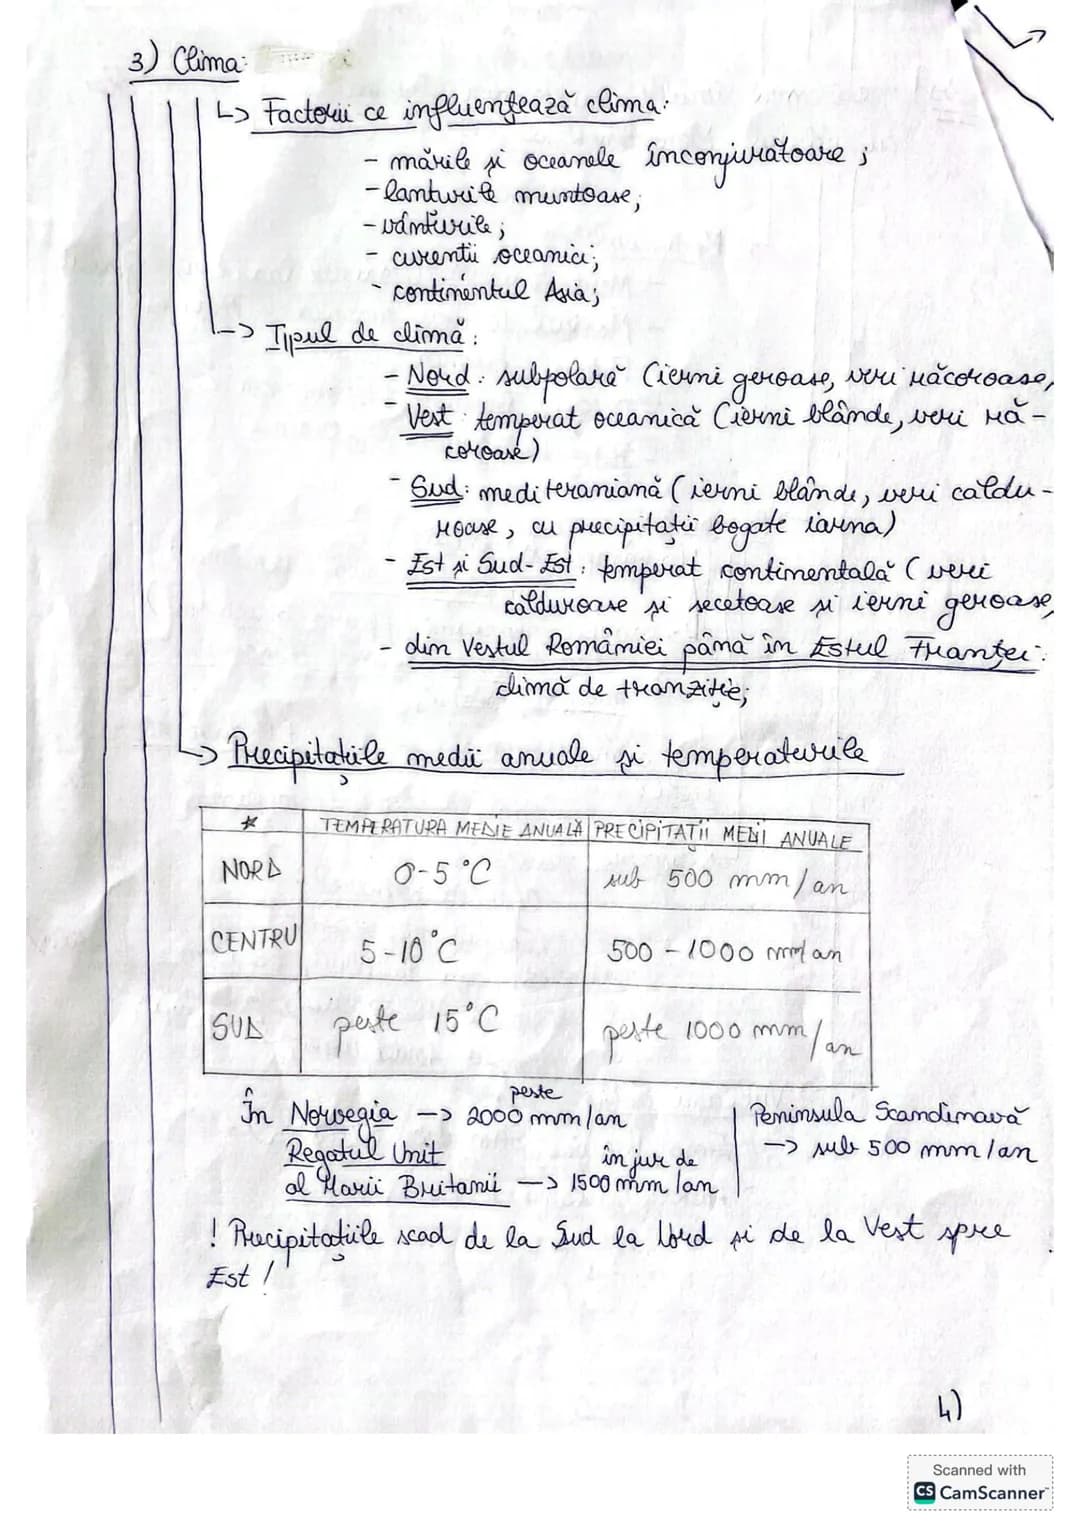 3) Clima:
↳ Factorii ce influențează clima:
- mările și oceanele înconjurătoare;
- lanturile muntoase;
- vânturile;
- curentii oceanici;
- continentul Asia;
→ Tipul de climă:
- Nord: subpolară (ierni geroase, veri răcoroase,
- Vest: temperat oceanică (ierni blânde, veri ră-
coroase)
- Sud: mediteraniană (ierni blânde, veri căldu-
roase, cu precipitații bogate iarna)
- Est și Sud-Est: temperat continentală (veri
călduroase și secetoase și ierni geroase,
- din Vestul României până în Estul Franței:
climă de tranziție;
↳ Precipitațiile medii anuale și temperaturile
* TEMPERATURA MEDIE ANUALĂ PRECIPITAȚII MEDII ANUALE
NORD 0-5 °C sub 500 mm/an
CENTRU 5-10 °C 500 - 1000 mm/an
SUD peste 15 °C peste 1000 mm/an
peste
În Norvegia → 2000 mm/an Peninsula Scandinavă
Regatul Unit în jur de → sub 500 mm/an
al Marii Britanii → 1500 mm/an
! Precipitațiile scad de la Sud la Nord și de la Vest spre
Est!
4)
Scanned with
CS CamScanner